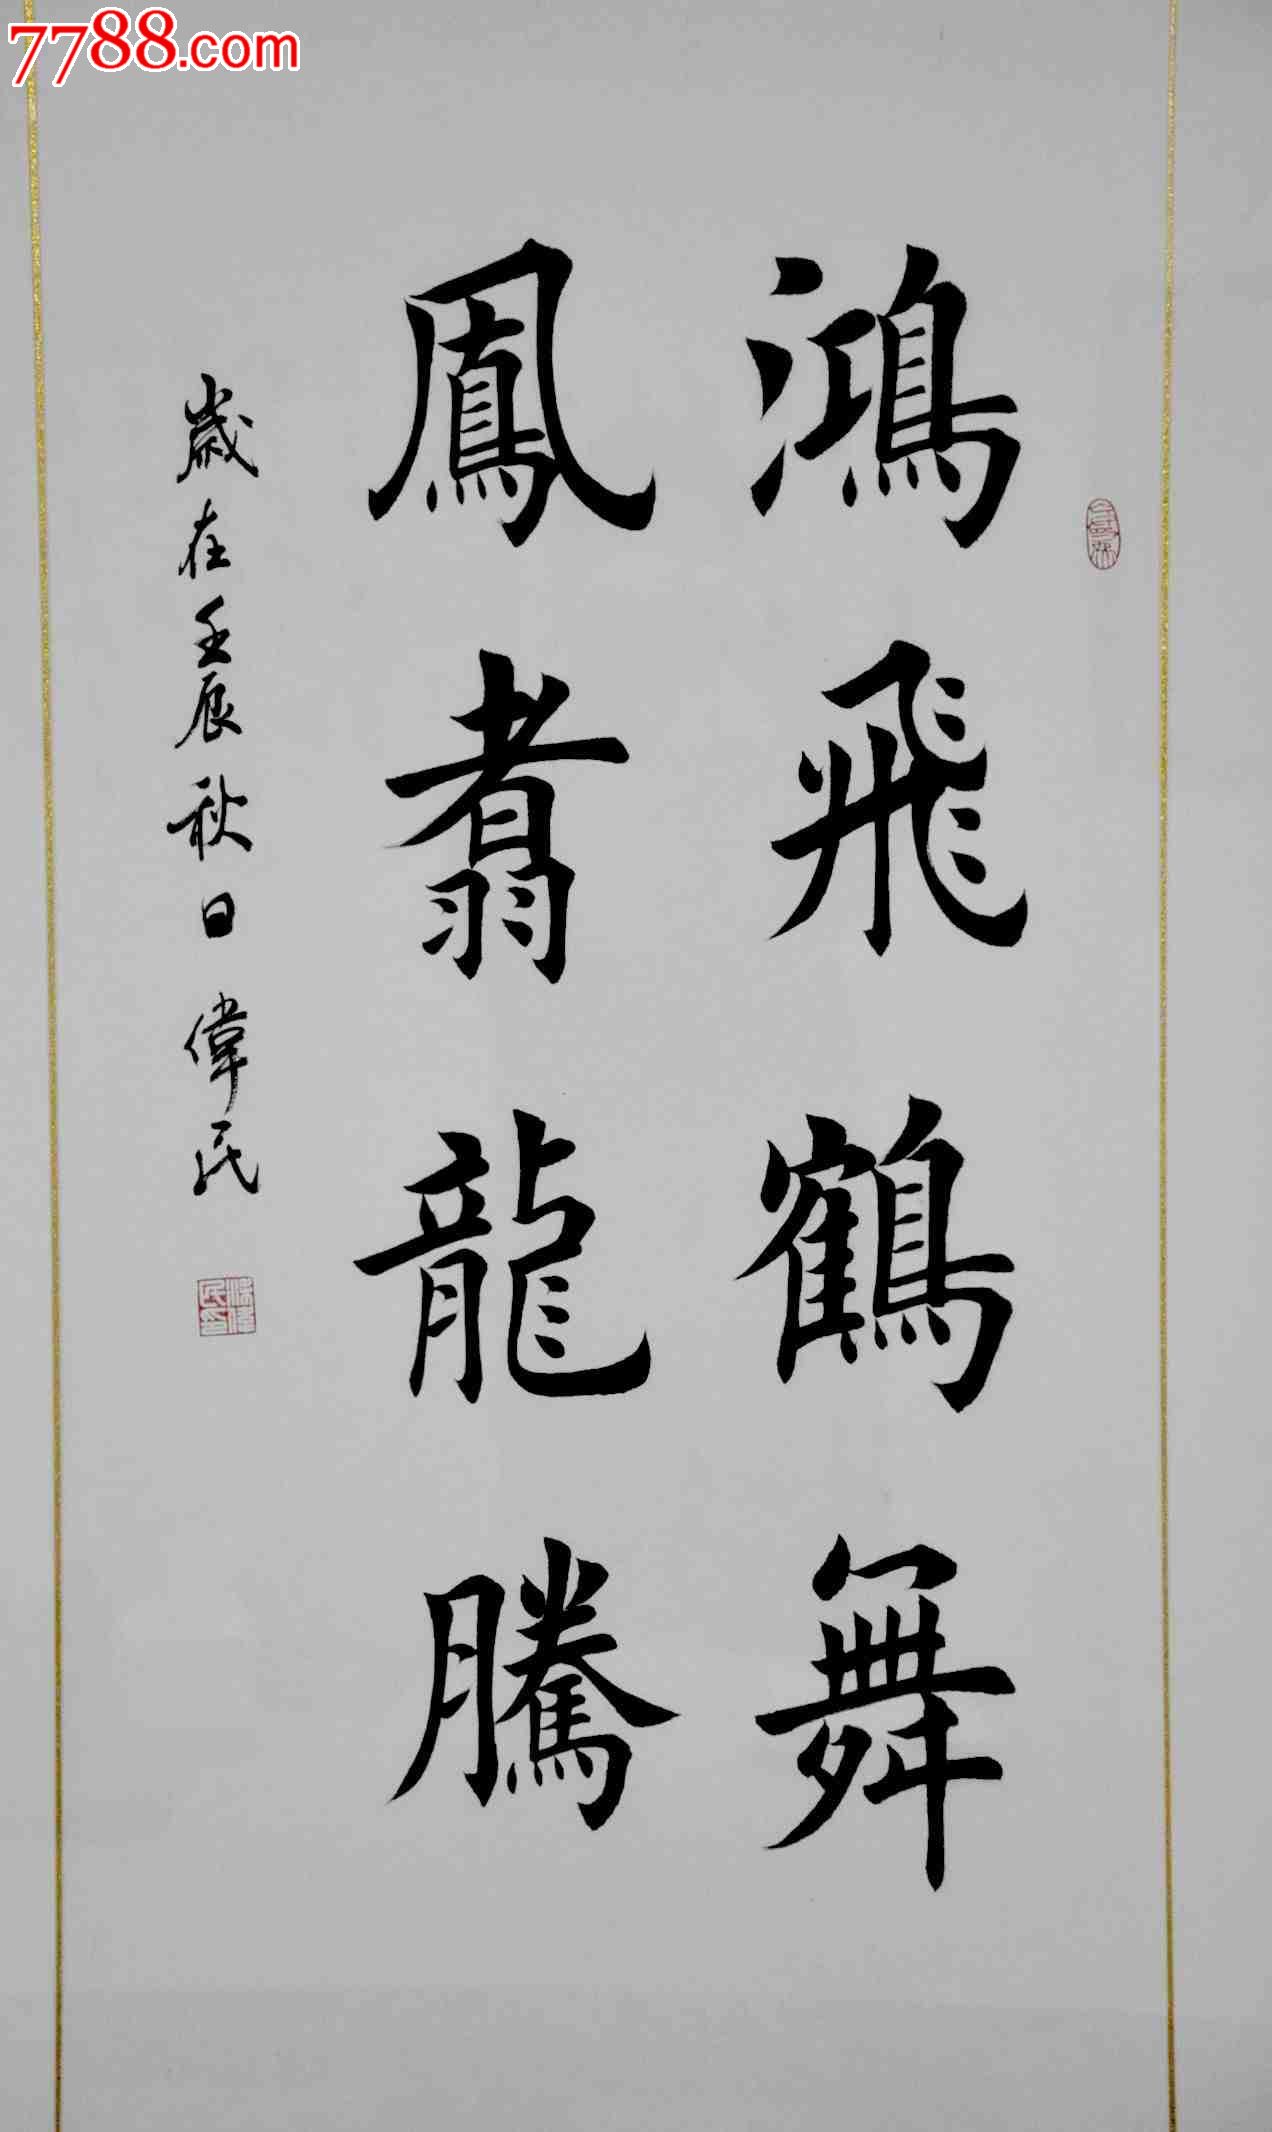 7788.com
鴻飛鶴舞
鳳翥龍騰
歲在壬辰秋日 偉民